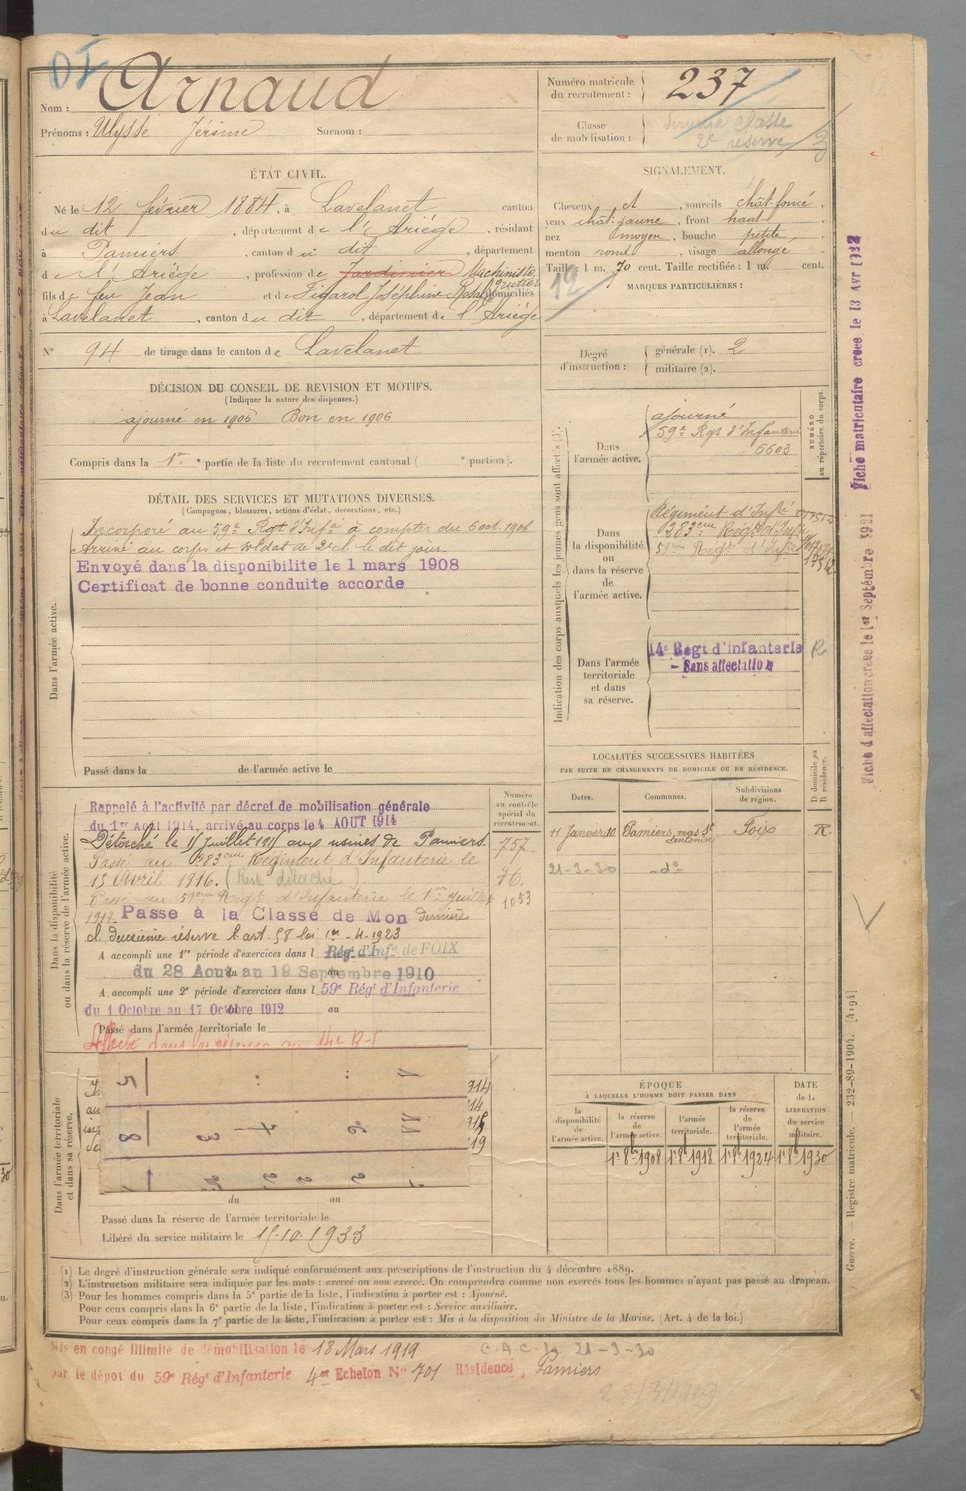 DI
Nom : Arnaud
Prénoms : Ulysse Jérôme Surnom :
Numéro matricule du recrutement : 237
Classe de mobilisation : classe 2e réserve 3
ÉTAT CIVIL.
Né le 12 février 1884, à Lavelanet canton
du dit, département de l'Ariège, résidant
à Pamiers, canton du dit, département
de l'Ariège, profession de jardinier Machiniste
fils de feu Jean et de Figarol Joséphine Rosalie domiciliés
à Lavelanet, canton du dit, département de l'Ariège
N° 94 de tirage dans le canton de Lavelanet
SIGNALEMENT.
Cheveux et, sourcils chât-foncé,
yeux chât-jaune, front haut
nez moyen, bouche petite,
menton rond, visage allongé
Taille : 1 m. 70 cent. Taille rectifiée : 1 m. cent.
12
MARQUES PARTICULIÈRES :
Degré d'instruction : générale (1). 2
militaire (2).
DÉCISION DU CONSEIL DE REVISION ET MOTIFS.
(Indiquer la nature des dispenses.)
ajourné en 1905 Bon en 1906
Compris dans la 1re partie de la liste du recrutement cantonal ( e portion).
DÉTAIL DES SERVICES ET MUTATIONS DIVERSES.
(Campagnes, blessures, actions d'éclat, décorations, etc.)
Dans l'armée active.
Incorporé au 59e Regt d'Infie à compter du 6 oct. 1906
Arrivé au corps et soldat de 2e cl le dit jour.
Envoyé dans la disponibilite le 1 mars 1908
Certificat de bonne conduite accorde
Passé dans la de l'armée active le
Indication des corps auxquels les jeunes gens sont affectés (3).
NUMÉRO au répertoire du corps.
Dans l'armée active.
ajourné
59e Rgt d'Infanterie
6603
Dans la disponibilité ou dans la réserve de l'armée active.
Régiment d'Infie
283eme Régt d'Infie
59eme Régt d'Infie
Dans l'armée territoriale et dans sa réserve.
14e Regt d'Infanterie
- Sans affectation
R
LOCALITÉS SUCCESSIVES HABITÉES
PAR SUITE DE CHANGEMENTS DE DOMICILE OU DE RÉSIDENCE.
Dates. Communes. Subdivisions de région. D domicile ou R résidence.
11 Janvier 10. Pamiers, Foix R.
21-3-30 -do-
Dans la disponibilité ou dans la réserve de l'armée active.
Numéro au contrôle spécial du recrutement.
Rappelé à l'activité par décret de mobilisation générale
du 1er Août 1914, arrivé au corps le 4 AOUT 1914
Détaché le 15 Juillet 1915 aux usines de Pamiers. 757
Passé au 283eme Régiment d'Infanterie le
15 Avril 1916. 76
Passé au 59eme Régt d'Infanterie le 1er Juillet 1053
1917. Passe à la Classe de Mon dernière
cl deuxième réserve art. 58 loi 1er-4-1923
A accompli une 1re période d'exercices dans l Régt d'Infie de FOIX
du 28 Aout au 19 Septembre 1910
A accompli une 2e période d'exercices dans l 59e Régt d'Infanterie
du 1 Octobre au 17 Octobre 1912 au
Passé dans l'armée territoriale le
Dans l'armée territoriale et dans sa réserve.
du au
Passé dans la réserve de l'armée territoriale le
Libéré du service militaire le 15.10.1933
ÉPOQUE
À LAQUELLE L'HOMME DOIT PASSER DANS
DATE de la LIBÉRATION du service militaire.
la disponibilité de l'armée active. la réserve de l'armée active. l'armée territoriale. la réserve de l'armée territoriale.
1er 8bre 1908 1er 8bre 1918 1er 8bre 1924 1er 8bre 1930
(1) Le degré d'instruction générale sera indiqué conformément aux prescriptions de l'instruction du 4 décembre 1889.
(2) L'instruction militaire sera indiquée par les mots : exercé ou non exercé. On comprendra comme non exercés tous les hommes n'ayant pas passé au drapeau.
(3) Pour les hommes compris dans la 5e partie de la liste, l'indication à porter est : Ajourné.
Pour ceux compris dans la 6e partie de la liste, l'indication à porter est : Service auxiliaire.
Pour ceux compris dans la 7e partie de la liste, l'indication à porter est : Mis à la disposition du Ministre de la Marine. (Art. 4 de la loi.)
Mis en congé illimite de démobilisation le 18 Mars 1919
par le dépot du 59e Régt d'Infanterie 4er Echelon N° 701 Résidence, Pamiers
C.A.C. le 21-3-30
Fiche matriculaire creee le 13 Avr 1932
Fiche d affectation creee le 1er Septembre 1921
Guerre. Registre matricule. 232-89-1904. [4194]